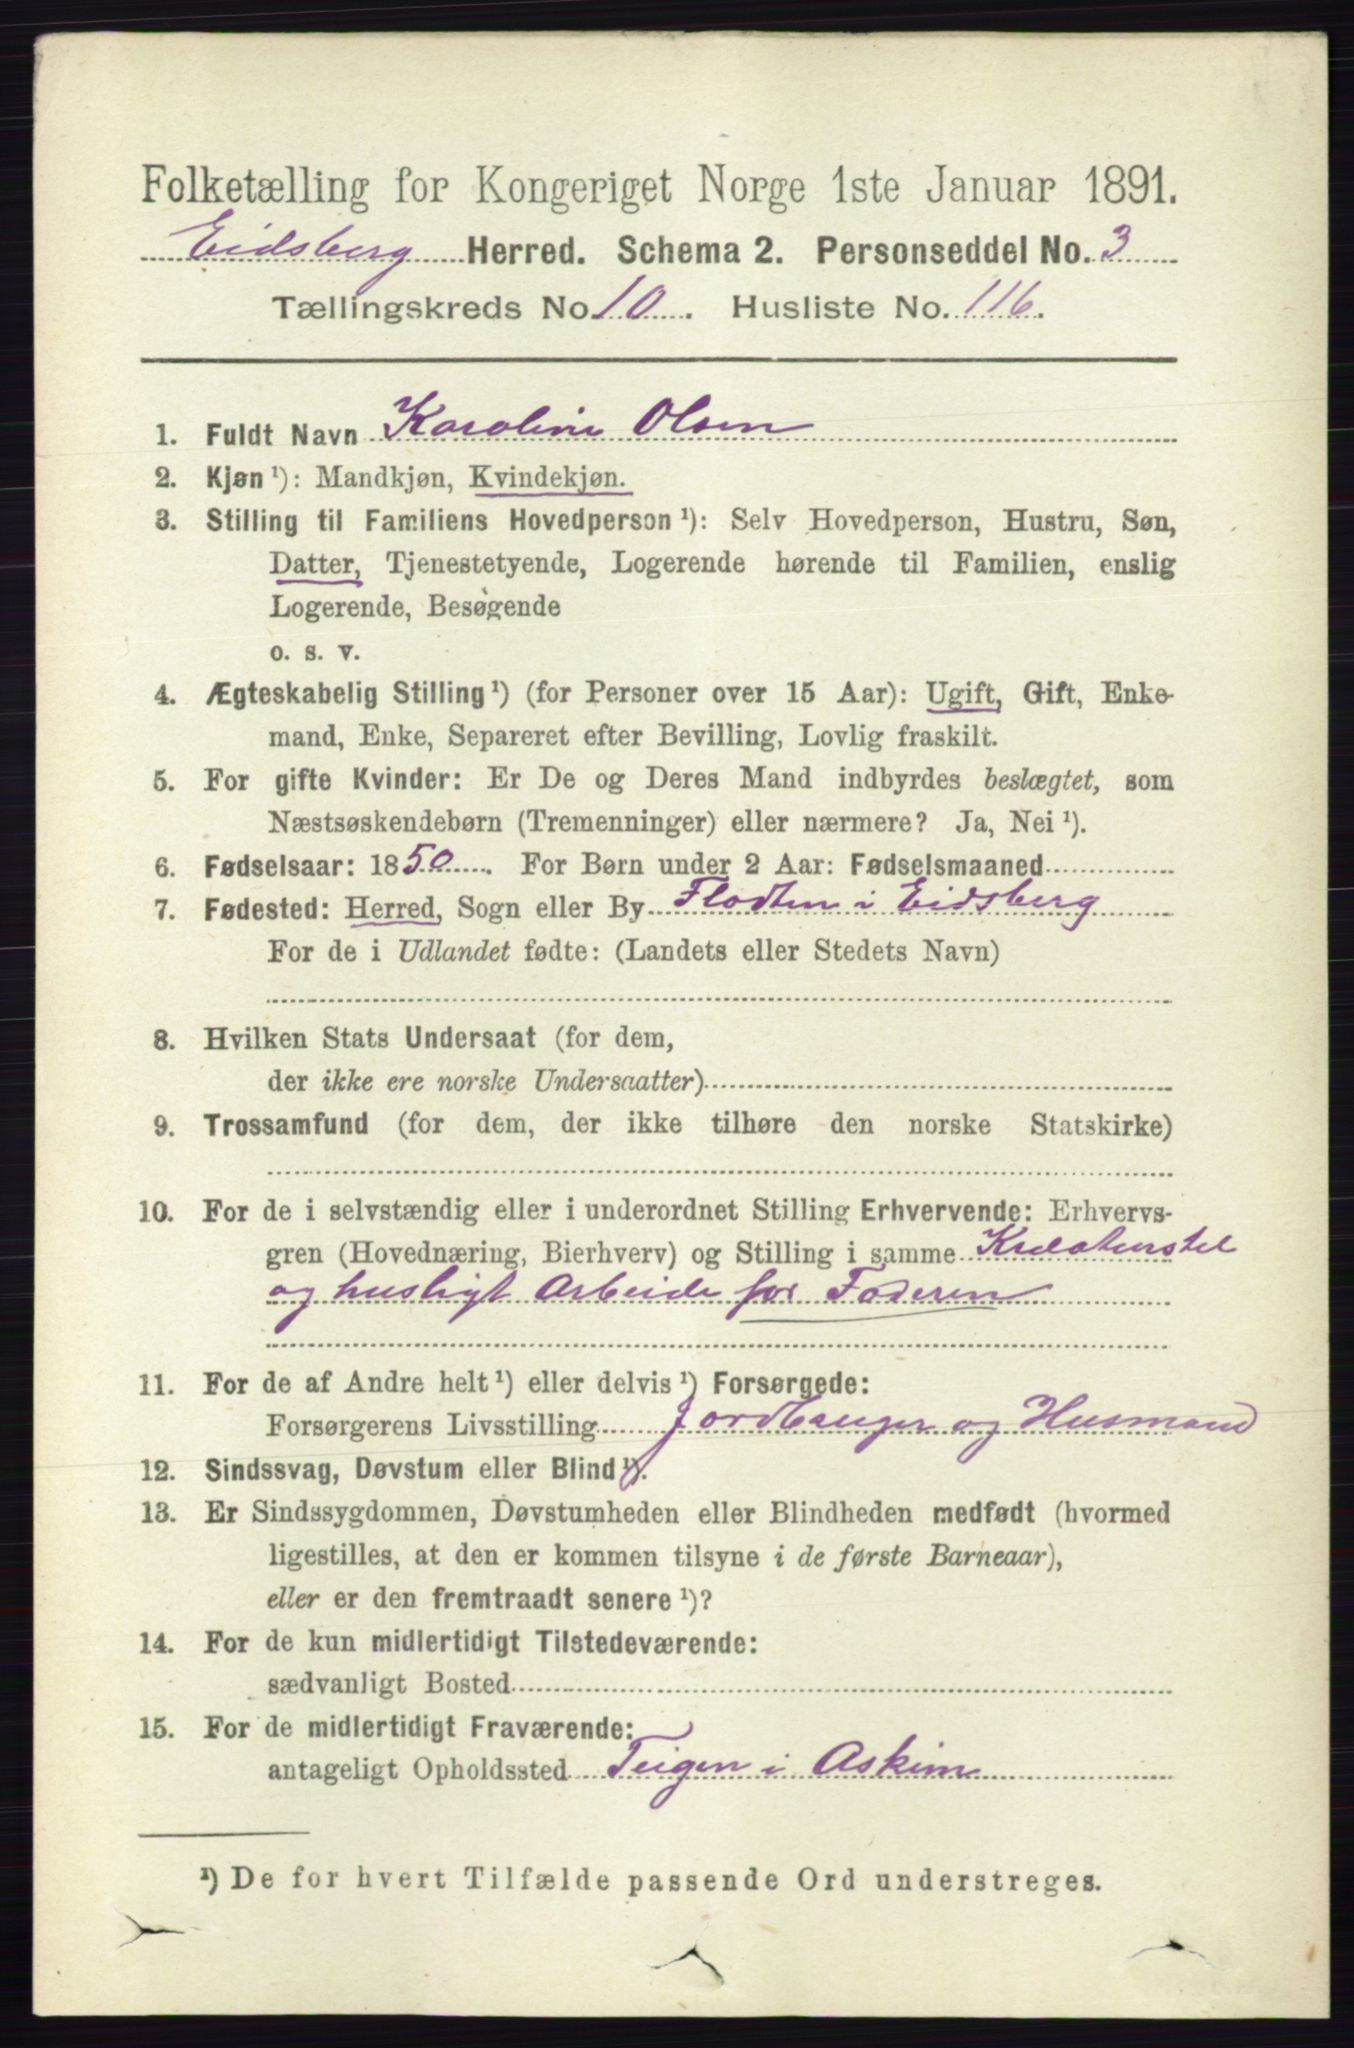 Folketælling for Kongeriget Norge 1ste Januar 1891.
Eidsberg Herred. Schema 2. Personseddel No. 3
Tællingskreds No. 10. Husliste No. 116.
1. Fuldt Navn Karoline Olsen
2. Kjøn ¹): Mandkjøn, Kvindekjøn.
3. Stilling til Familiens Hovedperson ¹): Selv Hovedperson, Hustru, Søn,
Datter, Tjenestetyende, Logerende hørende til Familien, enslig
Logerende, Besøgende
o. s. v.
4. Ægteskabelig Stilling ¹) (for Personer over 15 Aar): Ugift, Gift, Enke-
mand, Enke, Separeret efter Bevilling, Lovlig fraskilt.
5. For gifte Kvinder: Er De og Deres Mand indbyrdes beslægtet, som
Næstsøskendebørn (Tremenninger) eller nærmere? Ja, Nei ¹).
6. Fødselsaar: 1850. For Børn under 2 Aar: Fødselsmaaned
7. Fødested: Herred, Sogn eller By Flodten i Eidsberg
For de i Udlandet fødte: (Landets eller Stedets Navn)
8. Hvilken Stats Undersaat (for dem,
der ikke ere norske Undersaatter)
9. Trossamfund (for dem, der ikke tilhøre den norske Statskirke)
10. For de i selvstændig eller i underordnet Stilling Erhvervende: Erhvervs-
gren (Hovednæring, Bierhverv) og Stilling i samme Kreaturstel
og husligt Arbeide for Faderen
11. For de af Andre helt ¹) eller delvis ¹) Forsørgede:
Forsørgerens Livsstilling Jordbruger og Husmand
12. Sindssvag, Døvstum eller Blind ¹).
13. Er Sindssygdommen, Døvstumheden eller Blindheden medfødt (hvormed
ligestilles, at den er kommen tilsyne i de første Barneaar),
eller er den fremtraadt senere ¹)?
14. For de kun midlertidigt Tilstedeværende:
sædvanligt Bosted
15. For de midlertidigt Fraværende:
antageligt Opholdssted Teigen i Askim
¹) De for hvert Tilfælde passende Ord understreges.